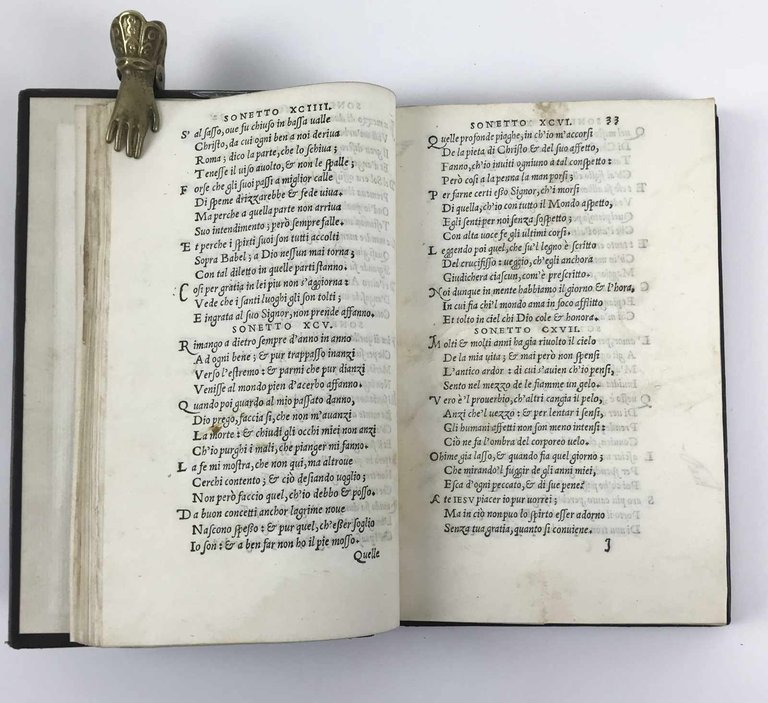 SONETTO XCIIII.
S' al sasso, oue fu chiuso in bassa ualle
Christo, da cui ogni ben a noi deriua
Roma; dico la parte, che lo schiua;
Tenesse il uiso auolto, & non le spalle;
Forse che gli suoi passi a miglior calle
Di speme drizzarebbe & sede uiua.
Ma perche a quella parte non arriua
Suo intendimento; però sempre falle.
Et perche i spirti suoi son tutti accolti
Sopra Babel; a Dio nessun mai torna;
Con tal diletto in quelle parti stanno.
Cosi per gratia in lei piu non s'aggiorna:
Vede che i santi luoghi gli son tolti;
E ingrata al suo Signor, non prende affanno.
SONETTO XCV.
Rimango a dietro sempre d'anno in anno
Ad ogni bene; & pur trappasso inanzi
Verso l'estremo: & parmi che pur dianzi
Venisse al mondo pien d'acerbo affanno.
Quando poi guardo al mio passato danno,
Dio prego, faccia si, che non m'auanzi
La morte: & chiudi gli occhi miei non anzi
Ch'io purghi i mali, che pianger mi fanno.
La fe mi mostra, che non qui, ma altroue
Cerchi contento; & ciò desiando uoglio;
Non però faccio quel, ch'io debbo & posso.
Da buon concetti anchor lagrime noue
Nascono spesso: & pur quel, ch'esser soglio
Io son: & a ben far non ho il pie mosso.
Quelle
SONETTO XCVI. 33
Quelle profonde piaghe, in ch'io m'accorsi
De la pieta di Christo & del suo affetto,
Fanno, ch'io inuiti ogniuno a tal conspetto:
Però cosi a la penna la man porsi;
Per farne certi esto Signor, ch'i morsi
Di quella, ch'io con tutto il Mondo aspetto,
Egli senti per noi senza sospetto;
Con alta uoce fe gli ultimi corsi.
Leggendo poi quel, che su'l legno è scritto
Del crucifisso: ueggio, ch'egli anchora
Giudichera ciascun, com'è prescritto.
Noi dunque in mente habbiamo il giorno & l'hora,
In cui fia ch'l mondo ama in foco afflitto
Et tolto in ciel chi Dio cole & honora.
SONETTO CXVII.
Molti & molti anni ha gia riuolto il cielo
De la mia uita; & mai però non spensi
L'antico ardor: di cui s'auien ch'io pensi,
Sento nel mezzo de le fiamme un gelo.
Vero è'l prouerbio, ch'altri cangia il pelo,
Anzi che'l uezzo: & per lentar i sensi,
Gli humani affetti non son meno intensi:
Ciò ne fa l'ombra del corporeo uelo.
Ohime gia lasso, & quando fia quel giorno;
Che mirando'l fuggir de gli anni miei,
Esca d'ogni peccato, & di sue pene?
A te IESV piacer io pur uorrei;
Ma in ciò non puo lo spirto esser adorno
Senza tua gratia, quanto si conuiene.
I